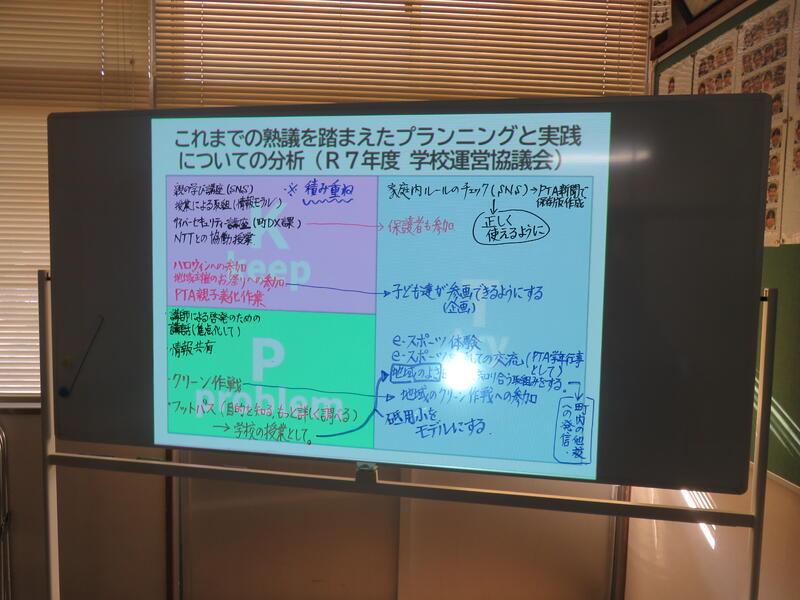 これまでの熟議を踏まえたプランニングと実践
についての分析（R７年度 学校運営協議会）
K
keep
親の学び講座(SNS)
授業による取組(情報モラル)
サイバーセキュリティー講座(町DX課)
NTTとの協働授業
※ 積み重ね
ハロウィンへの参加
地域主催のお祭りへの参加
PTA親子美化作業
P
problem
・講師による啓発のための
講話(焦点化して)
・情報共有
・クリーン作戦
・フットパス(目的を知る、もっと詳しく調べる)
→学校の授業として。
T
家庭内ルールのチェック(SNS)→PTA新聞で
保存版作成
正しく
使えるように
保護者も参加
子ども達が参画できるようにする
(企画)
e-スポーツ体験
e-スポーツ ての交流。(PTA学年行事
として)
地域のよさ 知り合う取組みをする。
地域のクリーン作戦への参加
砥用小を
モデルにする
町内の他校
への発信・